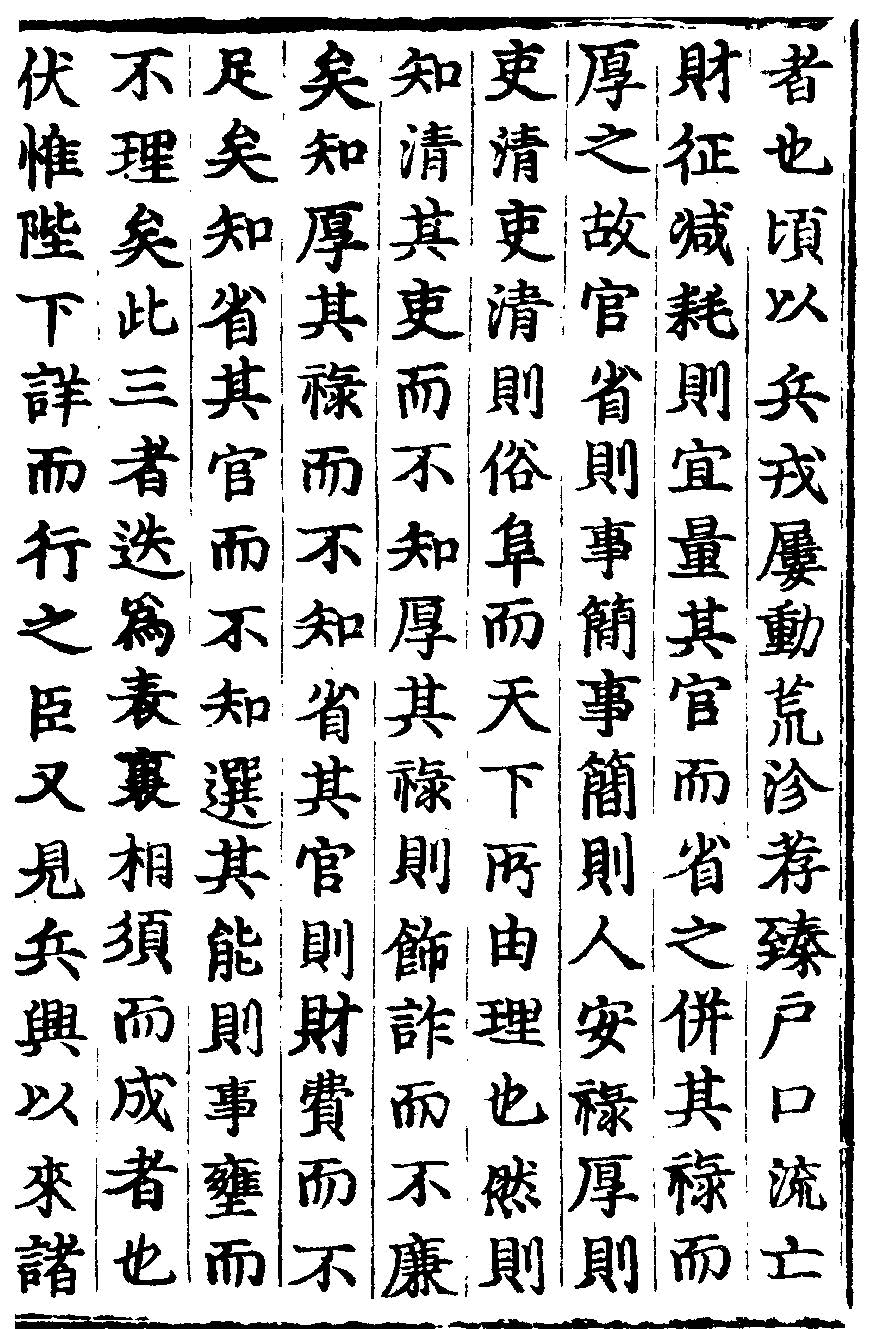 者也頃以兵戎屢動荒沴荐臻戶口流亡
財征減耗則宜量其官而省之併其祿而
厚之故官省則事簡事簡則人安祿厚則
吏清吏清則俗阜而天下所由理也然則
知清其吏而不知厚其祿則飾詐而不廉
矣知厚其祿而不知省其官則財費而不
足矣知省其官而不知選其能則事壅而
不理矣此三者迭爲表裏相須而成者也
伏惟陛下詳而行之臣又見兵興以來諸